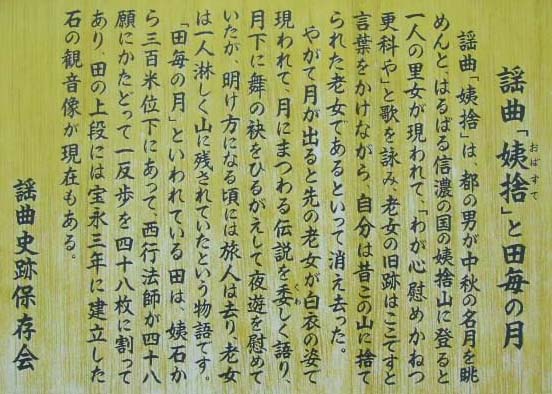 謡曲「姨捨」と田毎の月
おばすて
謡曲「姨捨」は、都の男が中秋の名月を眺
めんと、はるばる信濃の国の姨捨山に登ると
一人の里女が現われて、「わが心慰めかねつ
更科や」と歌を詠み、老女の旧跡はここですと
言葉をかけながら、自分は昔この山に捨て
られた老女であるといって消え去った。
やがて月が出ると先の老女が白衣の姿で
現われて、月にまつわる伝説を委しく語り、
くわ
月下に舞の袂をひるがえして夜遊を慰めて
いたが、明け方になる頃には旅人は去り、老女
は一人淋しく山に残されていたという物語です。
「田毎の月」といわれている田は、姨石か
ら三百米位下にあって、西行法師が四十八
願にかたどって一反歩を四十八枚に割って
あり、田の上段には宝永三年に建立した
石の観音像が現在もある。
謡曲史跡保存会